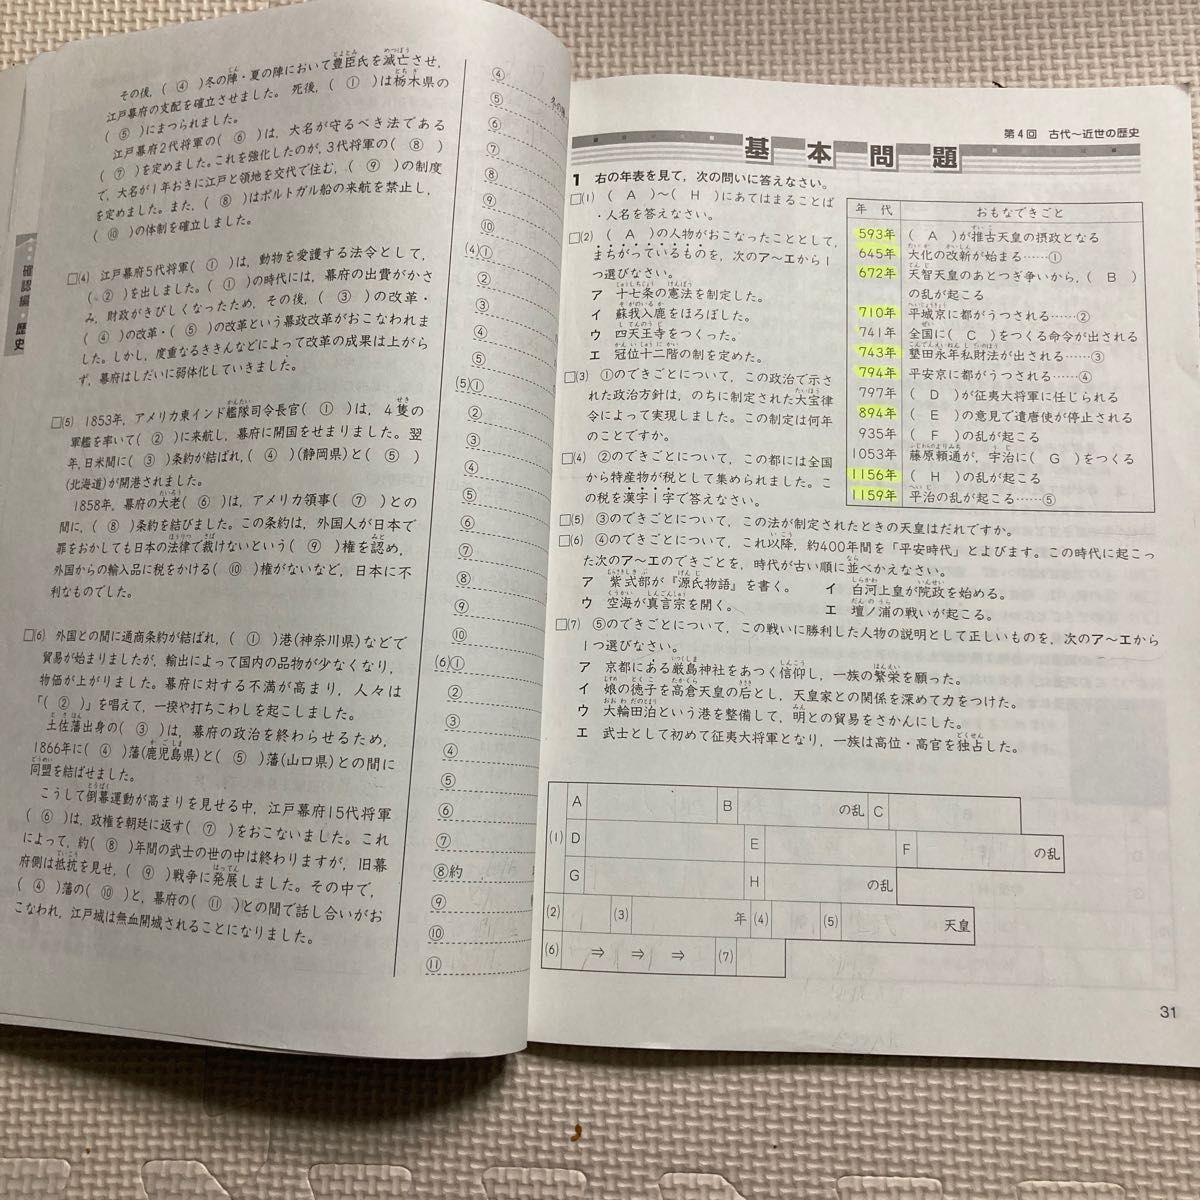 その後，( ④ )冬の陣・夏の陣において豊臣氏を滅亡させ，
江戸幕府の支配を確立させました。死後，( ① )は栃木県の
( ⑤ )にまつられました。
江戸幕府2代将軍の( ⑥ )は，大名が守るべき法である
( ⑦ )を定めました。これを強化したのが，3代将軍の( ⑧ )
で，大名が1年おきに江戸と領地を交代で住む，( ⑨ )の制度
を定めました。また，( ⑧ )はポルトガル船の来航を禁止し，
( ⑩ )の体制を確立しました。
□(4) 江戸幕府5代将軍( ① )は，動物を愛護する法令として，
( ② )を出しました。( ① )の時代には，幕府の出費がかさ
み，財政がきびしくなったため，その後，( ③ )の改革・
( ④ )の改革・( ⑤ )の改革という幕政改革がおこなわれま
した。しかし，度重なるききんなどによって改革の成果は上がら
ず，幕府はしだいに弱体化していきました。
□(5) 1853年，アメリカ東インド艦隊司令長官( ① )は，4隻の
軍艦を率いて( ② )に来航し，幕府に開国をせまりました。翌
年，日米間に( ③ )条約が結ばれ，( ④ )(静岡県)と( ⑤ )
(北海道)が開港されました。
1858年，幕府の大老( ⑥ )は，アメリカ領事( ⑦ )との
間に，( ⑧ )条約を結びました。この条約は，外国人が日本で
罪をおかしても日本の法律で裁けないという( ⑨ )権を認め，
外国からの輸入品に税をかける( ⑩ )権がないなど，日本に不
利なものでした。
□(6) 外国との間に通商条約が結ばれ，( ① )港(神奈川県)などで
貿易が始まりましたが，輸出によって国内の品物が少なくなり，
物価が上がりました。幕府に対する不満が高まり，人々は
「( ② )」を唱えて，一揆や打ちこわしを起こしました。
土佐藩出身の( ③ )は，幕府の政治を終わらせるため，
1866年に( ④ )藩(鹿児島県)と( ⑤ )藩(山口県)との間に
同盟を結ばせました。
こうして倒幕運動が高まりを見せる中，江戸幕府15代将軍
( ⑥ )は，政権を朝廷に返す( ⑦ )をおこないました。これ
によって，約( ⑧ )年間の武士の世の中は終わりますが，旧幕
府側は抵抗を見せ，( ⑨ )戦争に発展しました。その中で，
( ④ )藩の( ⑩ )と，幕府の( ⑪ )との間で話し合いがお
こなわれ，江戸城は無血開城されることになりました。
確認編・歴史
④
⑤
⑥
⑦
⑧
⑨
⑩
(4)①
②
③
④
⑤
(5)①
②
③
④
⑤
⑥
⑦
⑧
⑨
⑩
(6)①
②
③
④
⑤
⑥
⑦
⑧約
⑨
⑩
⑪
第4回 古代～近世の歴史
基本問題
1 右の年表を見て，次の問いに答えなさい。
□(1) ( A )～( H )にあてはまることば
・人名を答えなさい。
□(2) ( A )の人物がおこなったこととして，
まちがっているものを，次のア～エから1
つ選びなさい。
ア 十七条の憲法を制定した。
イ 蘇我入鹿をほろぼした。
ウ 四天王寺をつくった。
エ 冠位十二階の制を定めた。
□(3) ①のできごとについて，この政治で示さ
れた政治方針は，のちに制定された大宝律
令によって実現しました。この制定は何年
のことですか。
□(4) ②のできごとについて，この都には全国
から特産物が税として集められました。こ
の税を漢字1字で答えなさい。
年 代 おもなできごと
593年 ( A )が推古天皇の摂政となる
645年 大化の改新が始まる……①
672年 天智天皇のあとつぎ争いから，( B )
の乱が起こる
710年 平城京に都がうつされる……②
741年 全国に( C )をつくる命令が出される
743年 墾田永年私財法が出される……③
794年 平安京に都がうつされる……④
797年 ( D )が征夷大将軍に任じられる
894年 ( E )の意見で遣唐使が停止される
935年 ( F )の乱が起こる
1053年 藤原頼通が，宇治に( G )をつくる
1156年 ( H )の乱が起こる
1159年 平治の乱が起こる……⑤
□(5) ③のできごとについて，この法が制定されたときの天皇はだれですか。
□(6) ④のできごとについて，これ以降，約400年間を「平安時代」とよびます。この時代に起こっ
た次のア～エのできごとを，時代が古い順に並べかえなさい。
ア 紫式部が『源氏物語』を書く。 イ 白河上皇が院政を始める。
ウ 空海が真言宗を開く。 エ 壇ノ浦の戦いが起こる。
□(7) ⑤のできごとについて，この戦いに勝利した人物の説明として正しいものを，次のア～エから
1つ選びなさい。
ア 京都にある厳島神社をあつく信仰し，一族の繁栄を願った。
イ 娘の徳子を高倉天皇の后とし，天皇家との関係を深めて力をつけた。
ウ 大輪田泊という港を整備して，明との貿易をさかんにした。
エ 武士として初めて征夷大将軍となり，一族は高位・高官を独占した。
(1) A B の乱 C
D E F の乱
G H の乱
(2) (3) 年 (4) (5) 天皇
(6) ⇒ ⇒ ⇒ (7)
31